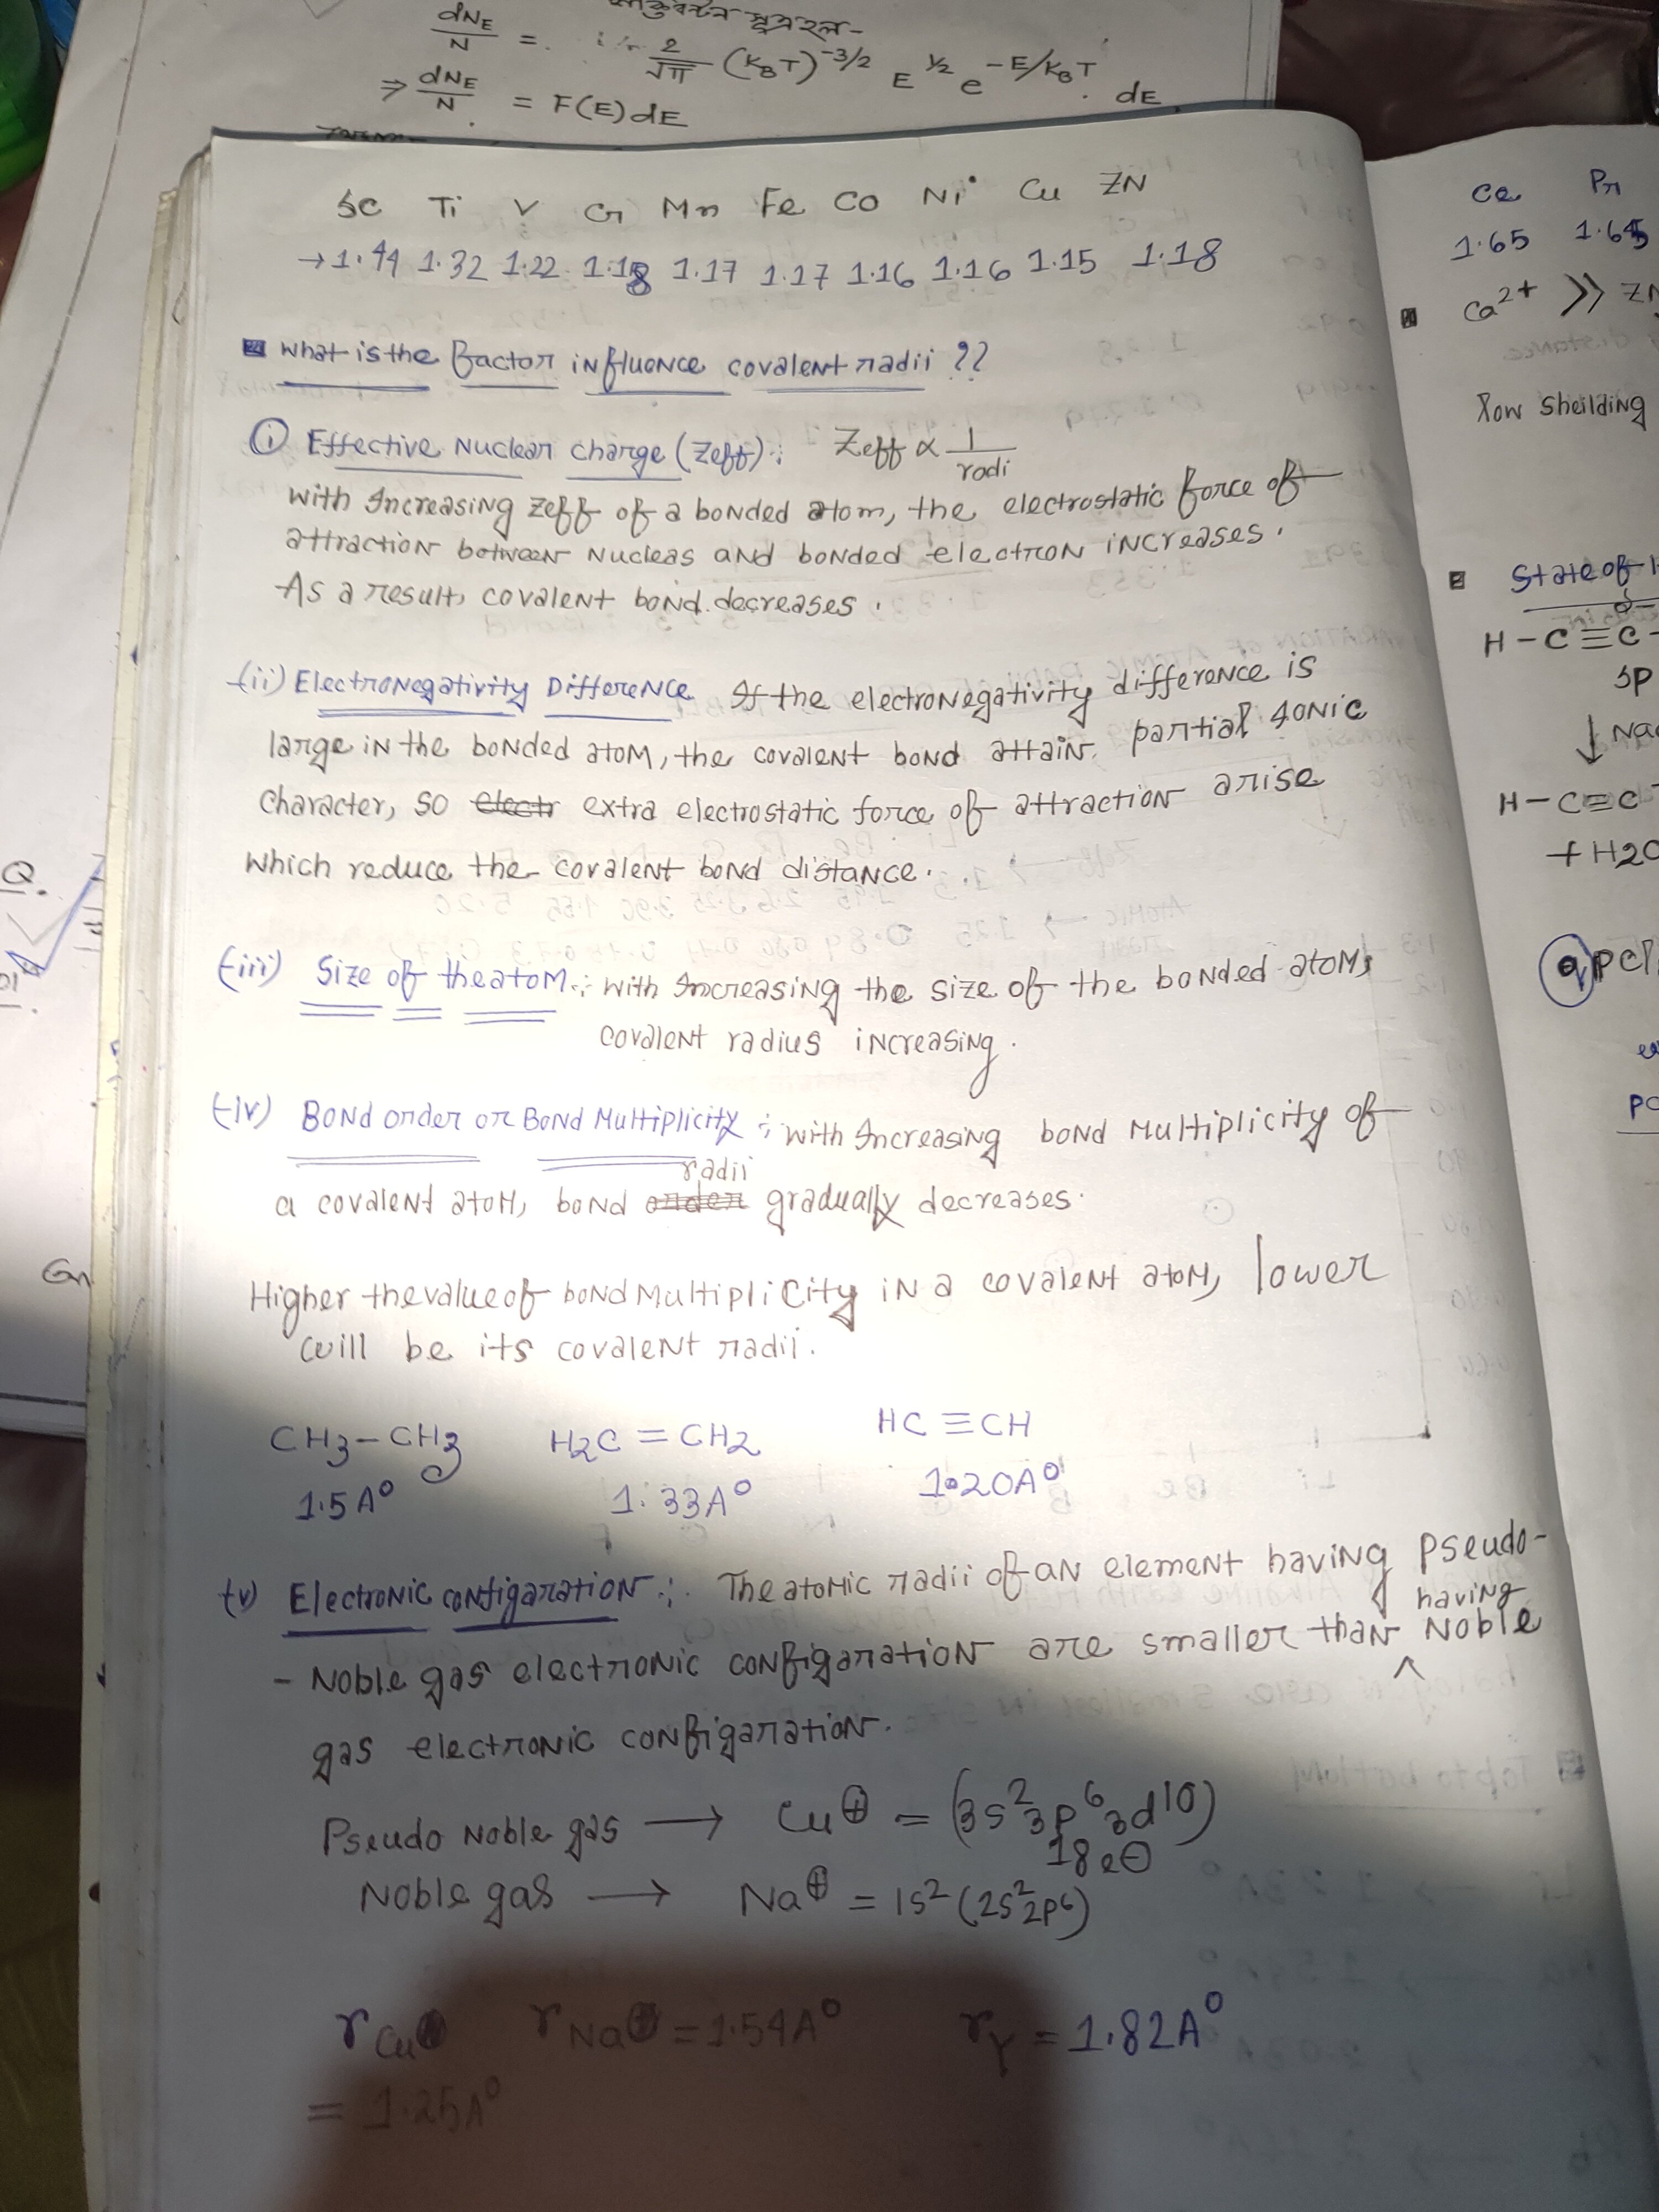 dNE/N = 2/√π (KBT)^-3/2 E^1/2 e^-E/KBT. dE
⇒ dNE/N = F(E)dE
Sc Ti V Cr Mn Fe Co Ni Cu ZN
→1.44 1.32 1.22 1.18 1.17 1.17 1.16 1.16 1.15 1.18
What is the factor influence covalent radii ??
(i) Effective Nuclear charge (Zeff): Zeff ∝ 1/radi
with Increasing Zeff of a bonded atom, the electrostatic force of
attraction between Nucleas and bonded electron increases.
As a result, covalent bond decreases.
(ii) Electronegativity Difference If the electronegativity difference is
large in the bonded atom, the covalent bond attain partial Ionic
character, so electr extra electrostatic force of attraction arise
which reduce the covalent bond distance.
(iii) Size of the atom: with Increasing the size of the bonded atom,
covalent radius increasing.
(iv) Bond order or Bond Multiplicity: with Increasing bond Multiplicity of
a covalent atom, bond order radii gradually decreases.
Higher the value of bond Multiplicity in a covalent atom, lower
will be its covalent radii.
CH3-CH3 H2C=CH2 HC≡CH
1.5A° 1.33A° 1.20A°
(v) Electronic configaration: The atomic radii of an element having pseudo-
- Noble gas electronic configaration are smaller than having Noble
gas electronic configaration.
Pseudo Noble gas → Cu⊕ = (3s² 3p⁶ 3d¹⁰)
18e⊖
Noble gas → Na⊕ = 1s² (2s² 2p⁶)
rCu rNa⊕ = 1.54A° rY = 1.82A°
= 1.25A°
Ce Pr
1.65 1.65
Ca²⁺ >>
low sheilding
State of
H-C≡C-
sp
↓
H-C≡C
+H2O
Q.